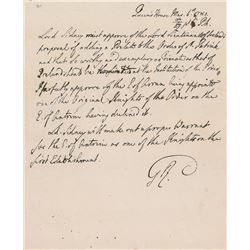 Queens House Mar. 1st 1783
Lord Sidney must approve of the Lord Lieutenant of Ireland's
proposal of adding a Prelate to the Order of St. Patrick
and that so worthy and exemplary a Primate as that of
Ireland should be at the Institution of the Order
I perfectly approve of the E. of Gorran being appointed
one of the Original Knights of the Order on the
E. of Antrim having declined it.
Ld. Sidney will make out a proper Warrant
for the E. of Antrim as one of the Knights on the
first Establishment.
GR